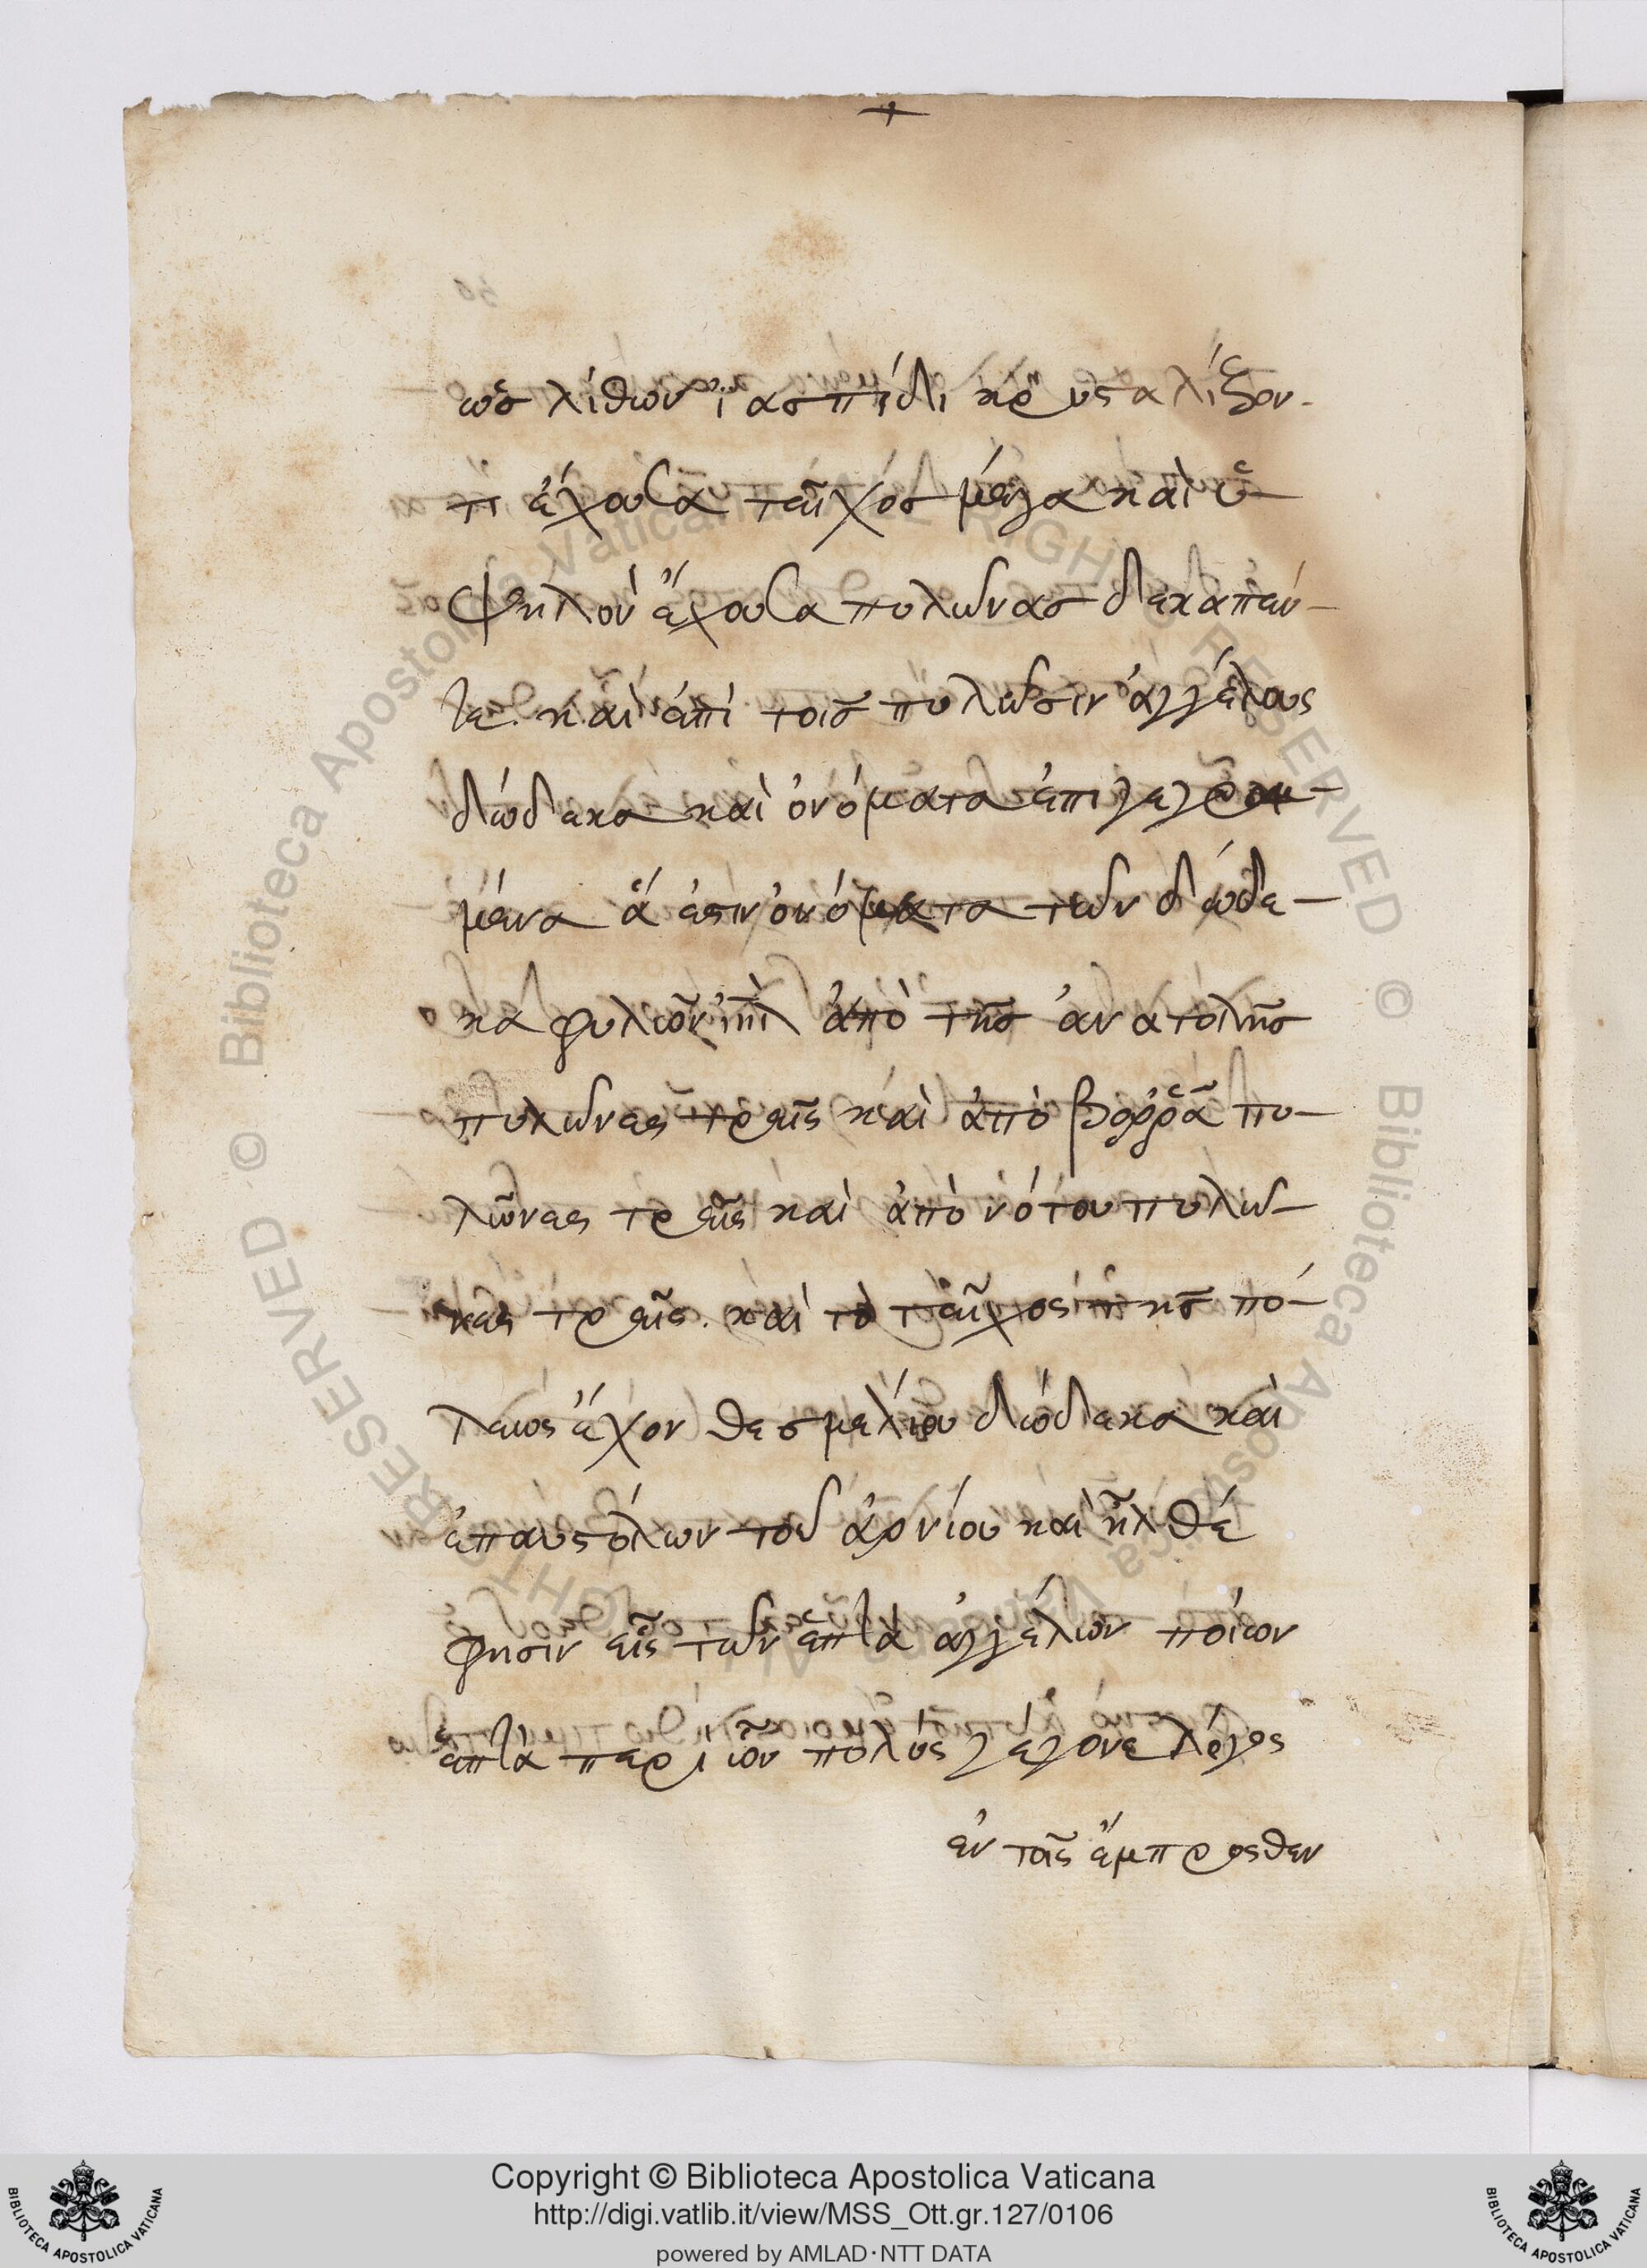 ὡς λίθων ἰασπίδι κρυσταλίζον-
τι ἔχουσα τεῖχος μέγα καὶ ὑ-
ψηλὸν ἔχουσα πυλῶνας δεκαπέν-
τε. καὶ ἐπὶ τοῖς πυλῶσιν ἀγγέλους
δώδεκα καὶ ὀνόματα ἐπιγεγραμ-
μένα ἅ ἐστιν ὀνόματα τῶν δώδε-
κα φυλῶν ἰηλ ἀπὸ τῆς ἀνατολῆς
πυλῶνας τρεῖς καὶ ἀπὸ βορρᾶ πυ-
λῶνας τρεῖς καὶ ἀπὸ νότου πυλῶ-
νας τρεῖς. καὶ τὸ τεῖχος τῆς πό-
λεως ἔχον θεσμελίου δώδεκα καὶ
τοῦ ἀρνίου καὶ ἦλθέ
φησιν εἷς τῶν ἑπτὰ ἀγγέλων ποίων
ἑπτὰ περὶ ὧν πολὺς γέγονε λόγος
ἐν ταῖς ἔμπροσθεν
Biblioteca Apostolica Vaticana ALL RIGHTS RESERVED ©
Copyright © Biblioteca Apostolica Vaticana
http://digi.vatlib.it/view/MSS_Ott.gr.127/0106
powered by AMLAD·NTT DATA
BIBLIOTECA APOSTOLICA VATICANA
BIBLIOTECA APOSTOLICA VATICANA